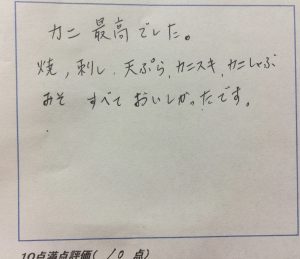 カニ 最高でした。
焼, 刺し, 天ぷら, カニスキ, カニしゃぶ
みそ すべておいしかったです。
10点満点評価( 10 点)